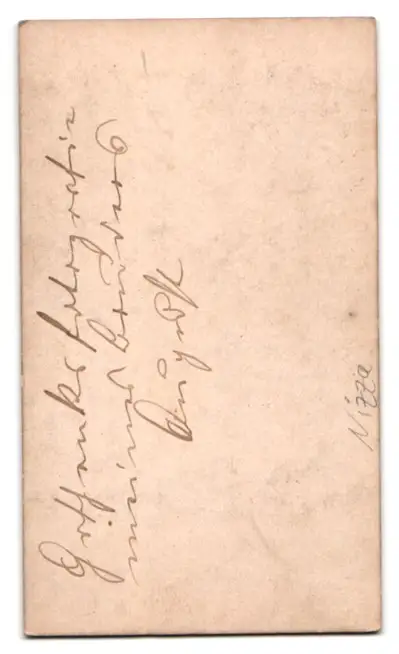 Geschenks fotografie
meines bruders
August
Nizza